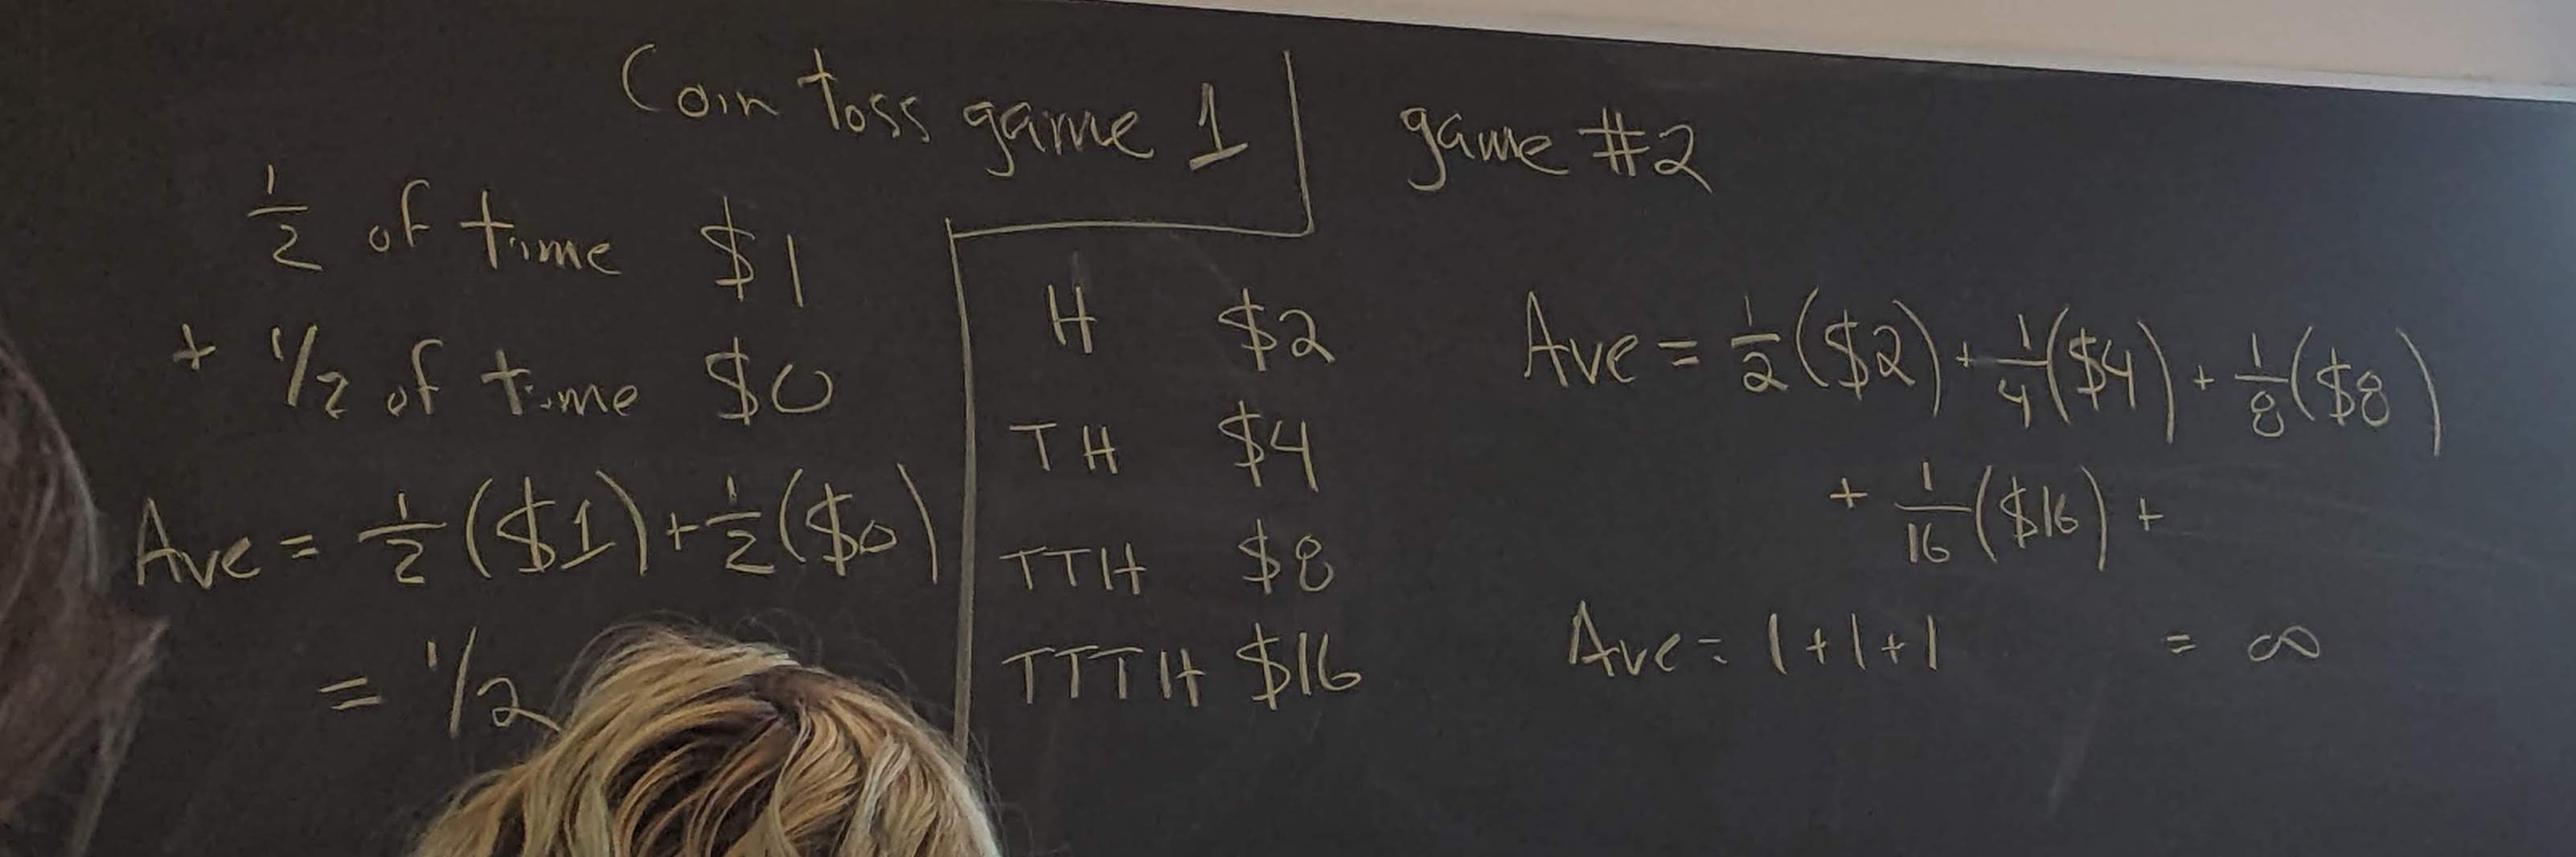 Coin toss game 1
1/2 of time $1
+ 1/2 of time $0
Ave = 1/2 ($1) + 1/2 ($0)
= 1/2
game #2
H $2
TH $4
TTH $8
TTTH $16
Ave = 1/2 ($2) + 1/4 ($4) + 1/8 ($8)
+ 1/16 ($16) +
Ave = 1 + 1 + 1 = ∞